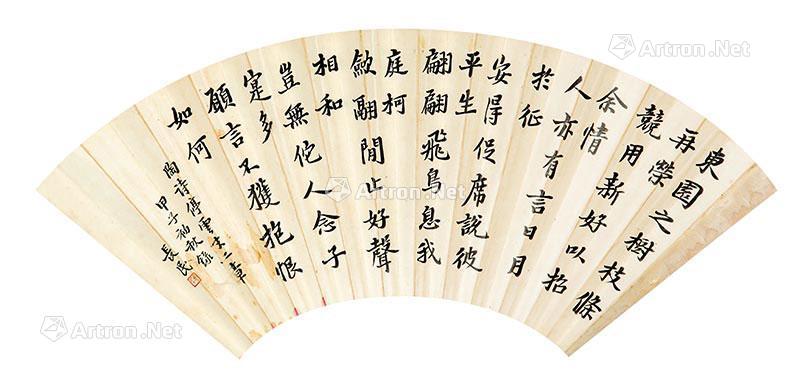 東園之樹枝條
再榮
競用新好以招
余情
人亦有言日月
於征
安得促席說彼
平生
翩翩飛鳥息我
庭柯
斂翮閒止好聲
相和
豈無佗人念子
寔多
願言不獲抱恨
如何
陶詩停雲末二章
甲子初秋錄
長民
Artron.Net
Artron.Net
Artron.Net
Artron.Net
Artron.Net